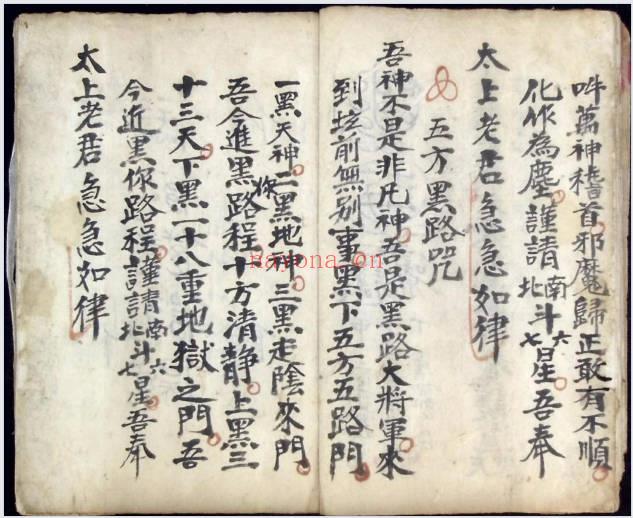 吽萬神稽首邪魔歸正敢有不順
化作為塵謹請南北斗六七星吾奉
太上老君急急如律
五方黑路咒
吾神不是非凡神吾是黑路大將軍來
到壇前無別事黑下五方五路門
一黑天神二黑地神三黑走陰來門
吾今進黑你路程十方清静上黑三
十三天下黑一十八重地獄之門吾
今近黑你路程謹請南北斗六七星吾奉
太上老君急急如律
nayona_cn